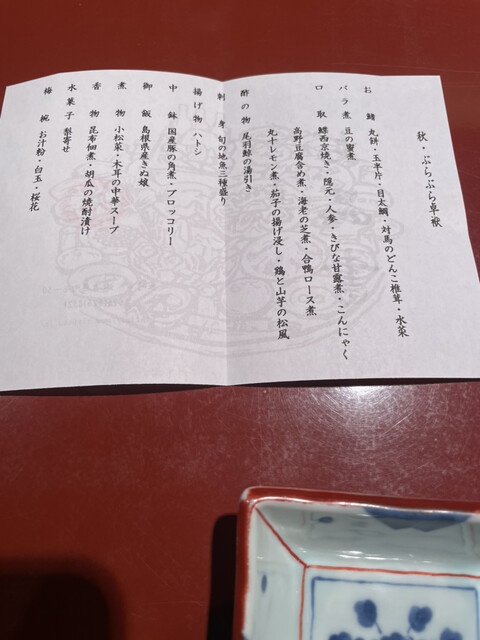 秋・ぶらぶら卓袱
お鰭 丸餅・玉半片・目太鯛・対馬のどんこ椎茸・水菜
バラ煮 豆の蜜煮
口取 鰈西京焼き・隠元・人参・きびな甘露煮・こんにゃく
高野豆腐含め煮・海老の芝煮・合鴨ロース煮
丸十レモン煮・茄子の揚げ浸し・鶏と山芋の松風
酢の物 尾羽鯨の湯引き
刺身 旬の地魚三種盛り
揚げ物 ハトシ
中鉢 国産豚の角煮・ブロッコリー
御飯 島根県産きぬ娘
煮物 小松菜・木耳の中華スープ
香物 昆布佃煮・胡瓜の焼酎漬け
水菓子 梨寄せ
梅椀 お汁粉・白玉・桜花